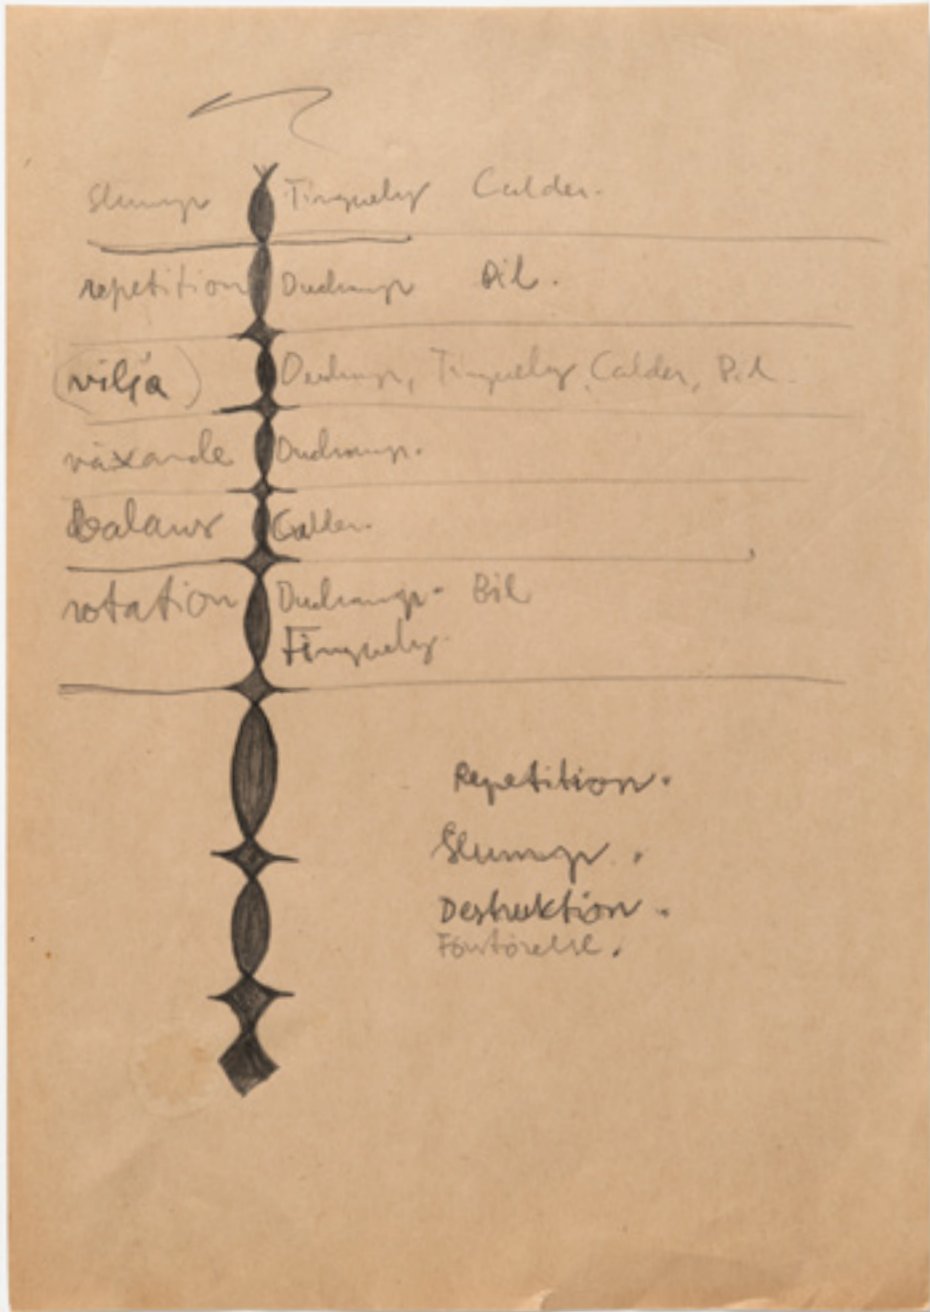 Slump Tinguely Calder.
repetition Duchamp Bil.
vilja Duchamp, Tinguely, Calder, Bil
växande Duchamp.
Balans Calder.
rotation Duchamp. Bil
Tinguely.
Repetition.
Slump.
Destruktion.